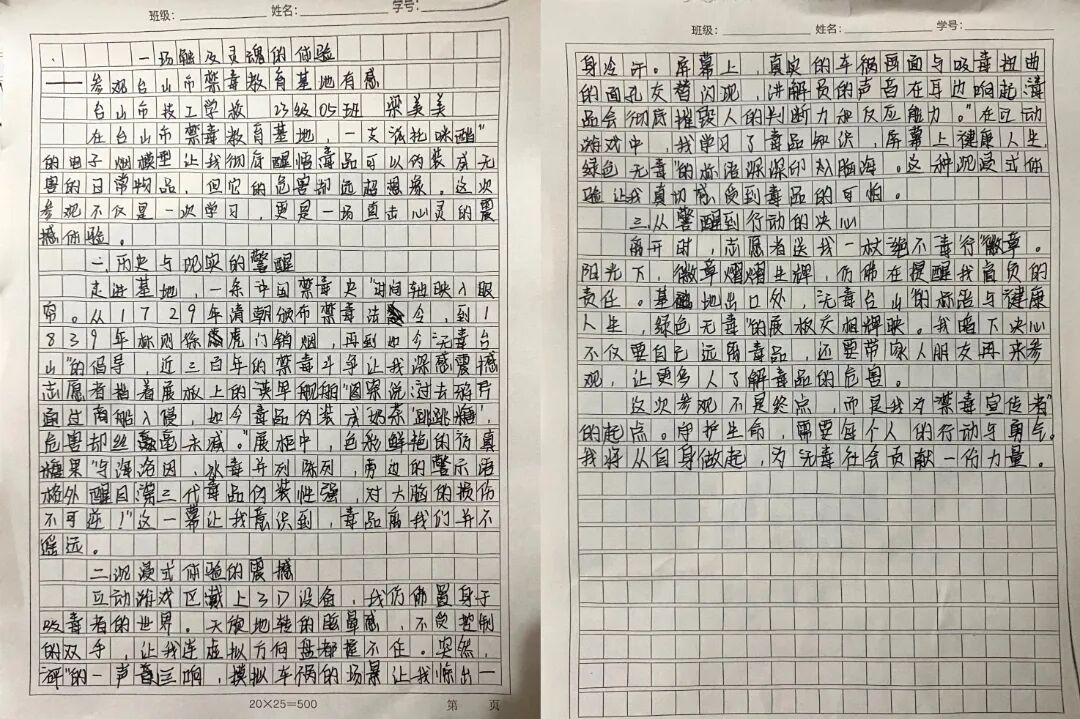 班级： 姓名： 学号：
一场触及灵魂的体验
——参观台山市禁毒教育基地有感
台山市技工学校 23级05班 梁美美
在台山市禁毒教育基地，一支"依托咪酯"
的电子烟模型让我彻底醒悟毒品可以伪装成无
害的日常物品，但它的危害却远超想象。这次
参观不仅是一次学习，更是一场直击心灵的震
撼体验。
一、历史与现实的警醒
走进基地，一条"中国禁毒史"时间轴映入眼
帘。从1729年清朝颁布禁毒法令，到1
839年林则徐虎门销烟，再到如今"无毒台
山"的倡导，近三百年的禁毒斗争让我深感震撼
志愿者指着展板上的"英军舰船"图案说："过去鸦片
通过商船入侵，如今毒品伪装成奶茶'跳跳糖'，
危害却丝毫未减。"展柜中，色彩鲜艳的"仿真
糖果"与海洛因，冰毒并列陈列，旁边的警示语
格外醒目"第三代毒品伪装性强，对大脑的损伤
不可逆！"这一幕让我意识到，毒品离我们并不
遥远。
二、沉浸式体验的震撼
互动游戏区戴上3D设备，我仿佛置身于
吸毒者的世界。天旋地转的眩晕感，不受控制
的双手，让我连虚拟方向盘都握不住。突然，
"砰"的一声巨响，模拟车祸的场景让我惊出一
20×25=500 第 页
班级： 姓名： 学号：
身冷汗。屏幕上，真实的车祸画面与吸毒扭曲
的面孔交替闪现，讲解员的声音在耳边响起"毒
品会彻底摧毁人的判断力和反应能力。"在互动
游戏中，我学习了毒品知识，屏幕上"健康人生，
绿色无毒"的标语深深印入脑海。这种沉浸式体
验让我真切感受到毒品的可怕。
三、从警醒到行动的决心
离开时，志愿者送我一枚"绝不毒行"徽章。
阳光下，徽章熠熠生辉，仿佛在提醒我肩负的
责任。基地出口处，"无毒台山"的标语与"健康
人生，绿色无毒"的展板交相辉映。我暗下决心
不仅要自己远离毒品，还要带家人朋友再来参
观，让更多人了解毒品的危害。
这次参观不是终点，而是我为"禁毒宣传者"
的起点。守护生命，需要每个人的行动与勇气。
我将从自身做起，为无毒社会贡献一份力量。